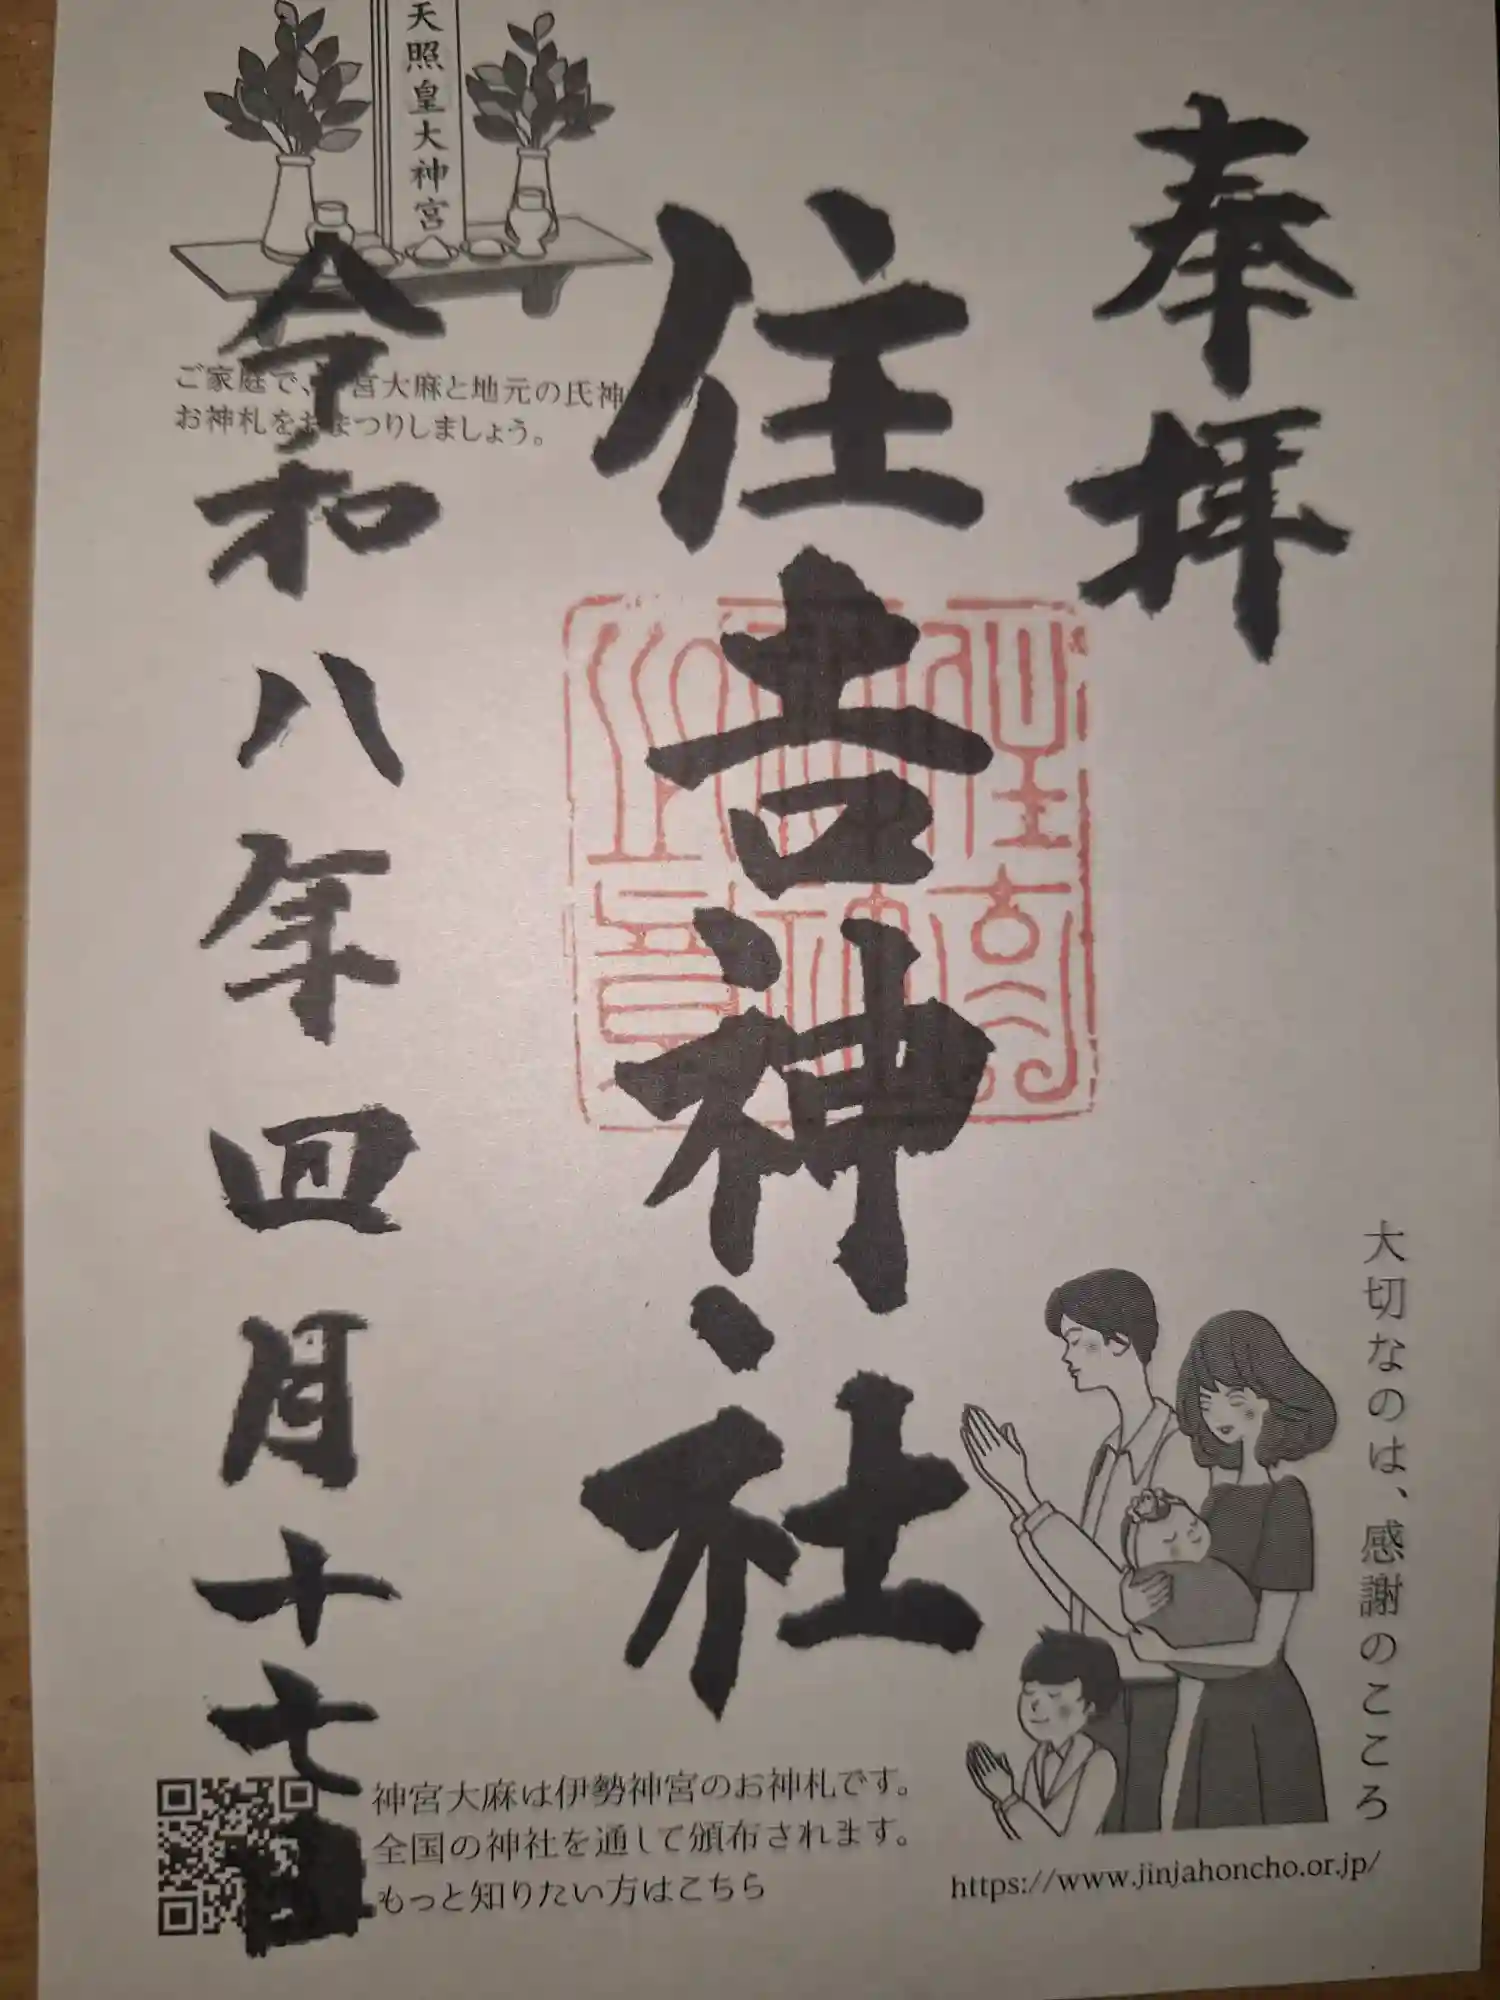 奉拝
住吉神社
令和八年四月十七日
天照皇大神宮
ご家庭で、宮大麻と地元の氏神
お神札をおまつりしましょう。
大切なのは、感謝のこころ
神宮大麻は伊勢神宮のお神札です。
全国の神社を通して頒布されます。
もっと知りたい方はこちら
https://www.jinjahoncho.or.jp/